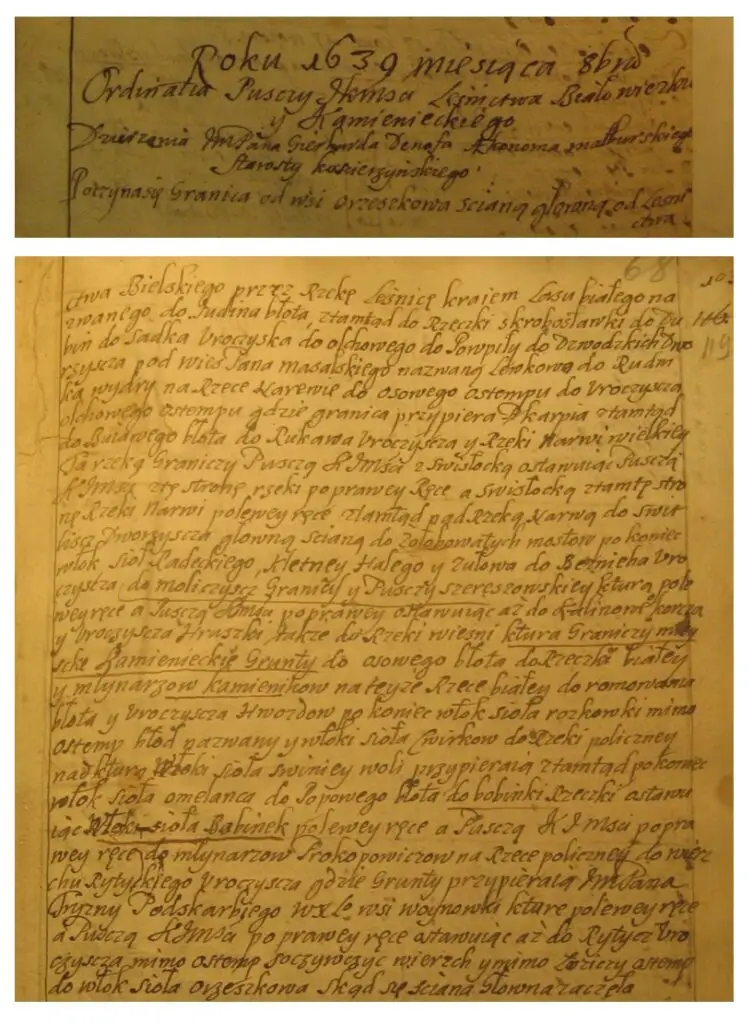 Roku 1639 miesiąca 8bra
Ordinatia Pusczy JKMsci Leśnictwa Białowiezku
y Kamienieckiego
Dzierzania JmPana Gierharda Denofa Ekonoma malburskiego
Starosty koscierzyńskiego
Poczyna się Granica od wsi Orzesekowa scianą głowną od Lesni
ctwa
68
ctwa Bielskiego przez Rzekę Leśnicę kraiem Lasu białego na
zwanego do Judina błota, ztamtąd do Rzeczki skrobostawki do Du
bun do Sadka Vroczyska do olchowego do Powpiły do Dzwodzkich Dwo
rzyscza pod wies Pana masalskiego nazwaną Lewkowo do Rudni
ka wydry na Rzece Narewie do osowego ostempu do Vroczyscza
olchowego ostempu gdzie granica przypiera Dkarpia ztamtąd
do Buiawego błota do Rukawa Vroczyscza y Rzeki Narwi wielkiey
Ta rzeka Graniczy Puscza KJMsci z Swisłocką ostawuiąc Puscza
KJMsci z tę stronę rzeki po prawey Ręce a swisłocką z tamtę stro
nę Rzeki Narwi po lewey ręce ztamtąd pod Rzeką Narwą do swit
Dworzyscza głowną scianą do zołobowatych mostow po koniec
włok sioł Radeckiego, Kletney Halego y Zulowa do Beznieha Vro
czyscza, do moliczyscz Granicy y Pusczy szereszowskiey ktura po le
wey ręce a Pusczą KJMsci po prawey ostawuiąc aż do Kalinowe korcza
y Vroczyscza Hruszki także do Rzeki wiesni ktura Graniczy miey
sckę Kamienieckię Grunty do osowego błota do Rzeczki białey
y młynarzow kamienikow na teyże Rzece białey do romowania
błota y Vroczyscza Hwozdow po koniec włok sioła rozkowki mimo
ostemp błod nazwany y włoki sioła Cwirkow do Rzeki policzney
nad kturą Włoki sioła swiniey woli przypieraią ztamtąd po koniec
włok sioła omelanca do Popowego błota do bobinki Rzeczki ostawu
iąc Włoki sioła Babinek po lewey ręce a Pusczą KJMsci po pra
wey ręce do młynarzow Prokopowiczow na Rzece policzney do wierz
chu Rytyckiego Vroczyscza gdzie Grunty przypieraią JmPana
Tryzny Podskarbiego WXLo wsi woynowki kture po lewey ręce
a Pusczą KJMsci po prawey ręce ostawuiąc aż do Rytycz Vro
czyscza mimo ostemp Soczywczyc wierzch y mimo Łoziczy ostemp
do włok sioła Orzeszkowa skąd się sciana Głowna zaczęła